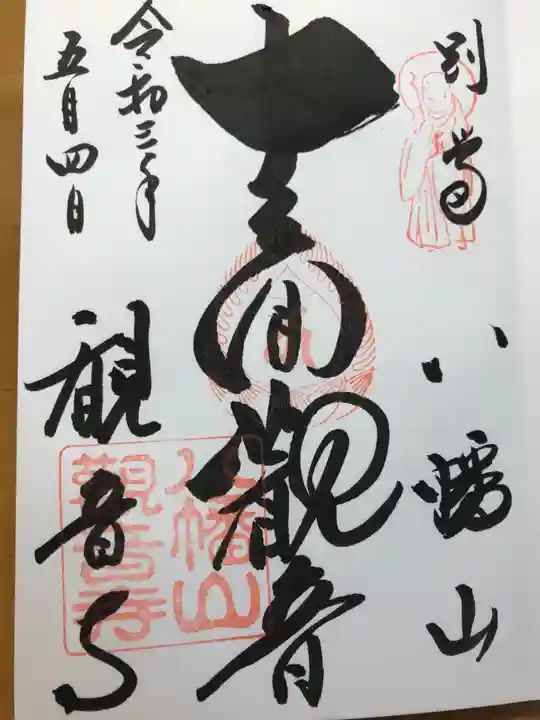 別當
八幡山
十一面観音
令和三年
五月四日
観音寺
八幡山
観音寺